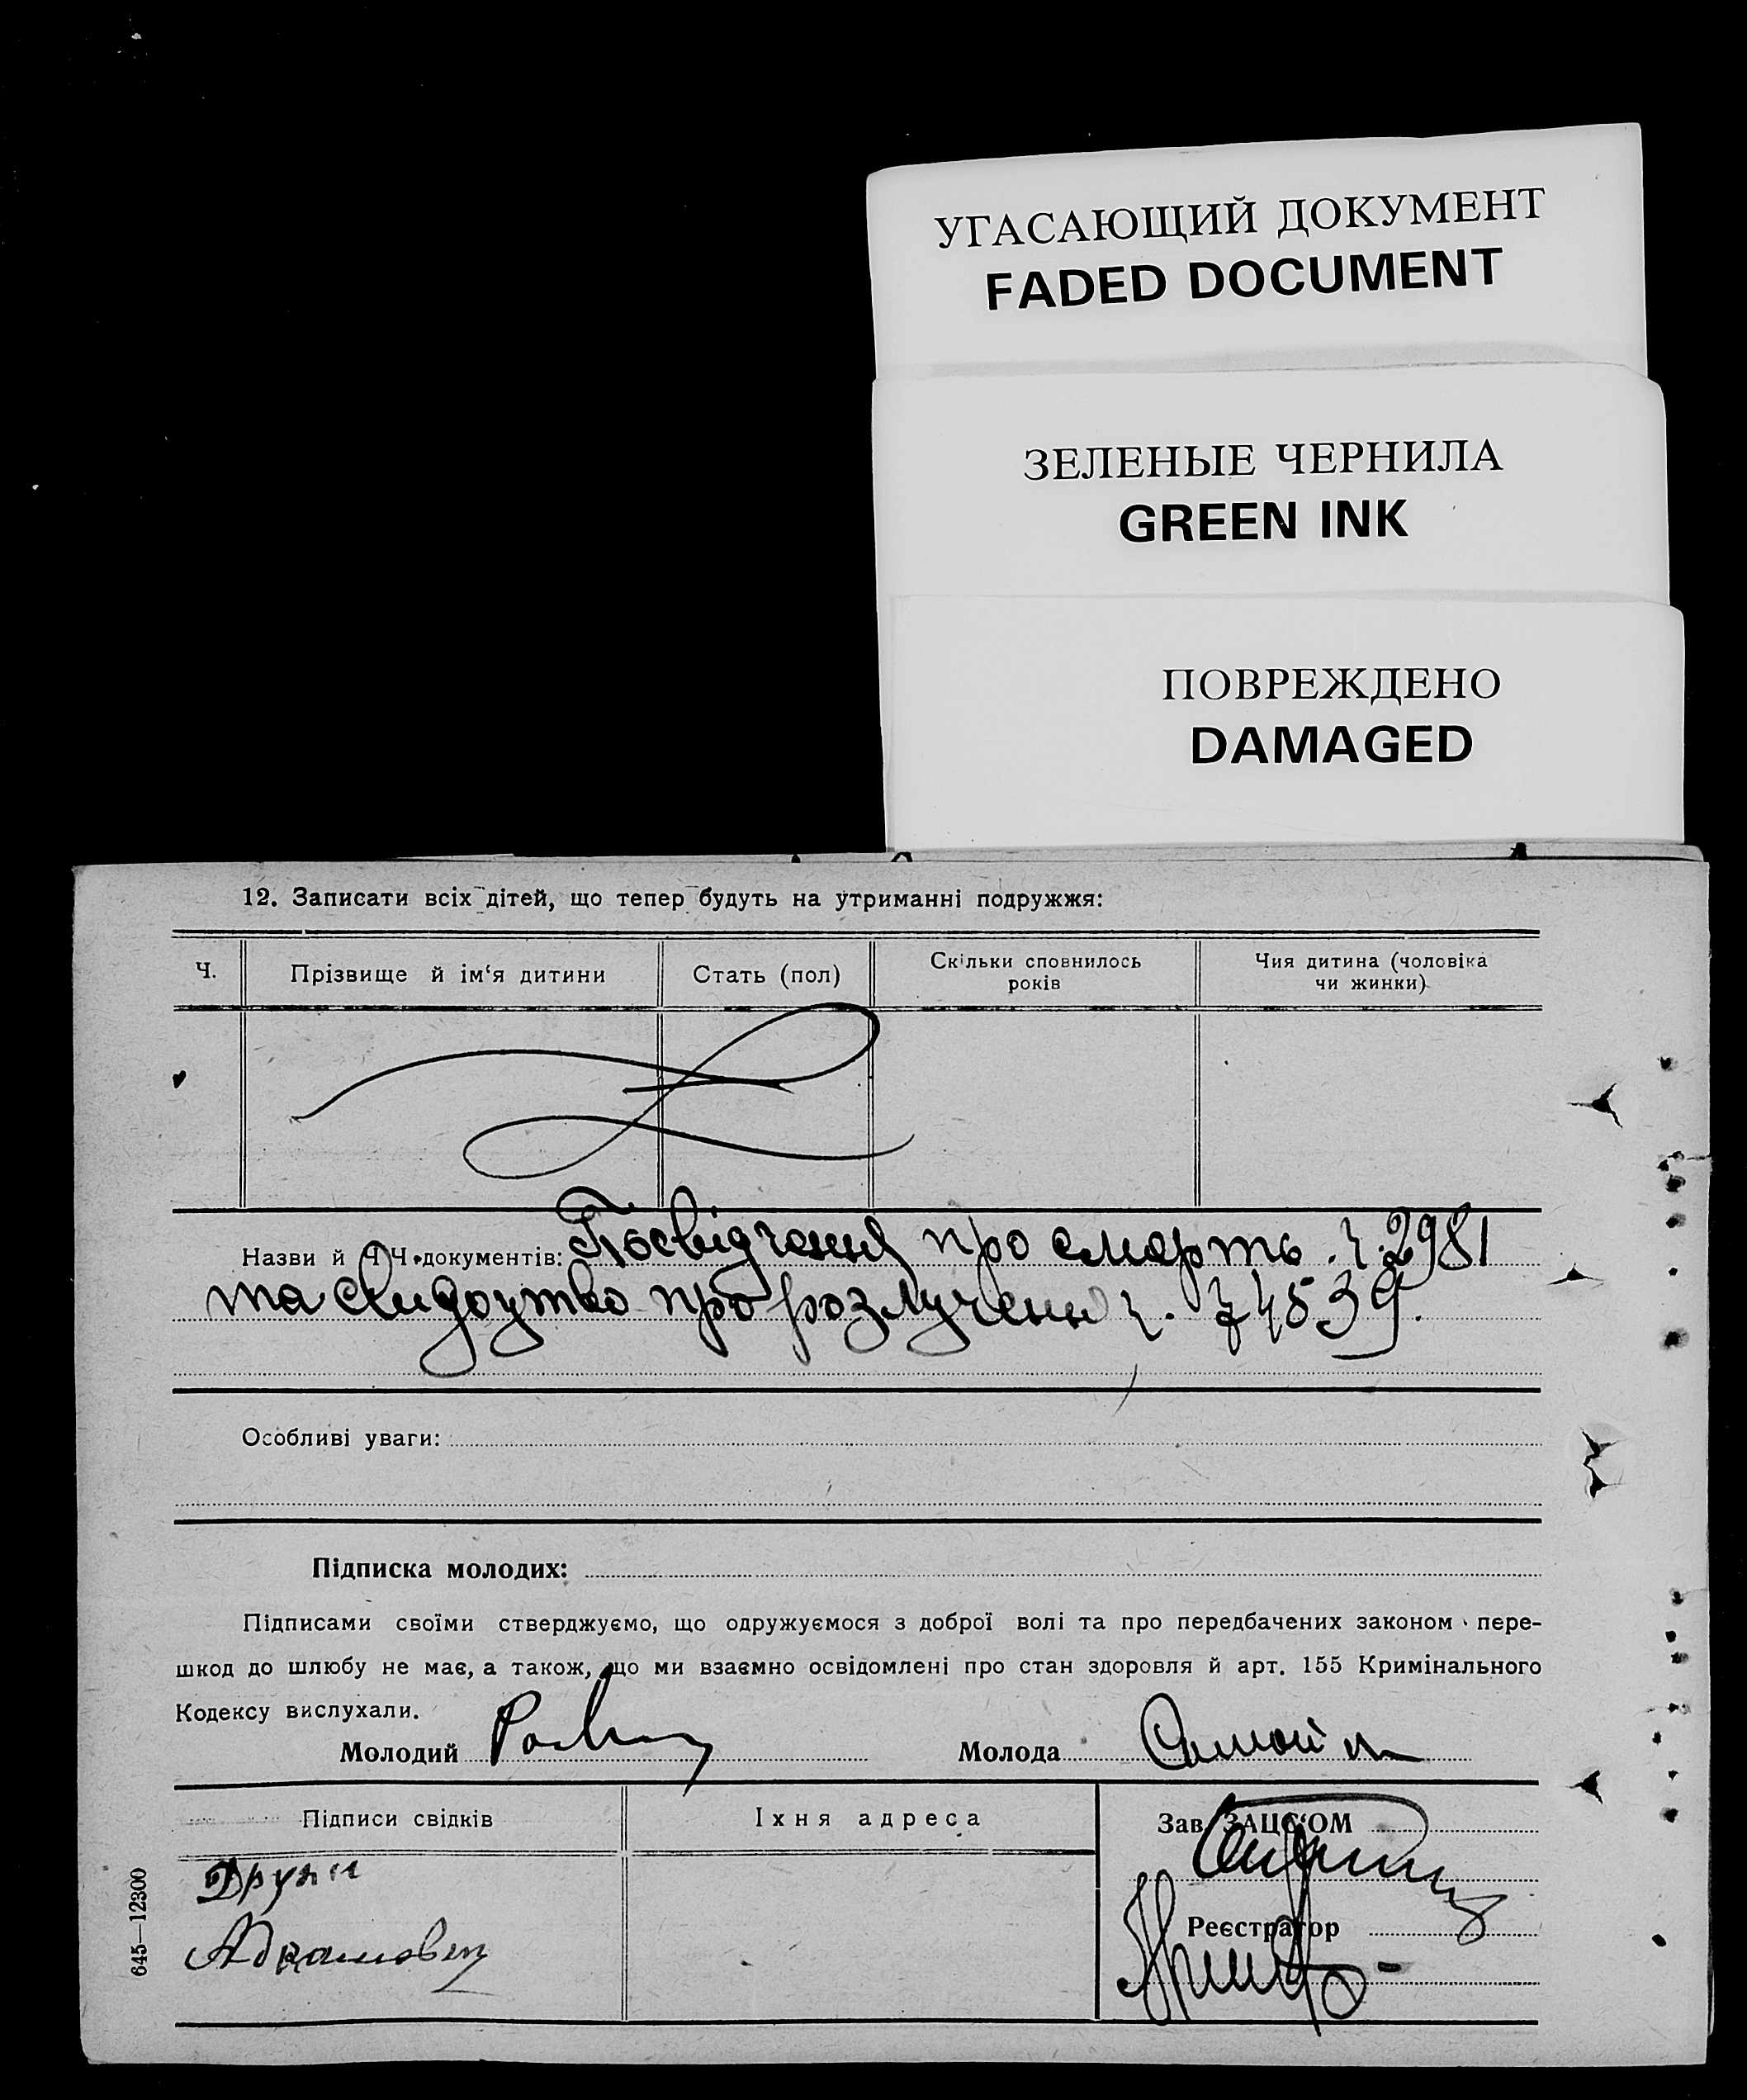 УГАСАЮЩИЙ ДОКУМЕНТ
FADED DOCUMENT
ЗЕЛЕНЫЕ ЧЕРНИЛА
GREEN INK
ПОВРЕЖДЕНО
DAMAGED
12. Записати всіх дітей, що тепер будуть на утриманні подружжя:
Ч.
Прізвище й ім‘я дитини
Стать (пол)
Скільки сповнилось
років
Чия дитина (чоловіка
чи жинки)
Назви й Ч Ч документів: Посвідчення про смерть ч. 2981
та свидоцтво про розлучення ч. 74539.
Особливі уваги:
Підписка молодих:
Підписами своїми стверджуємо, що одружуємося з доброї волі та про передбачених законом пере-
шкод до шлюбу не має, а також, що ми взаємно освідомлені про стан здоровля й арт. 155 Кримінального
Кодексу вислухали.
Молодий
Молода
Підписи свідків
Їхня адреса
Зав. ЗАЦС‘ОМ
Реєстратор
645—12300